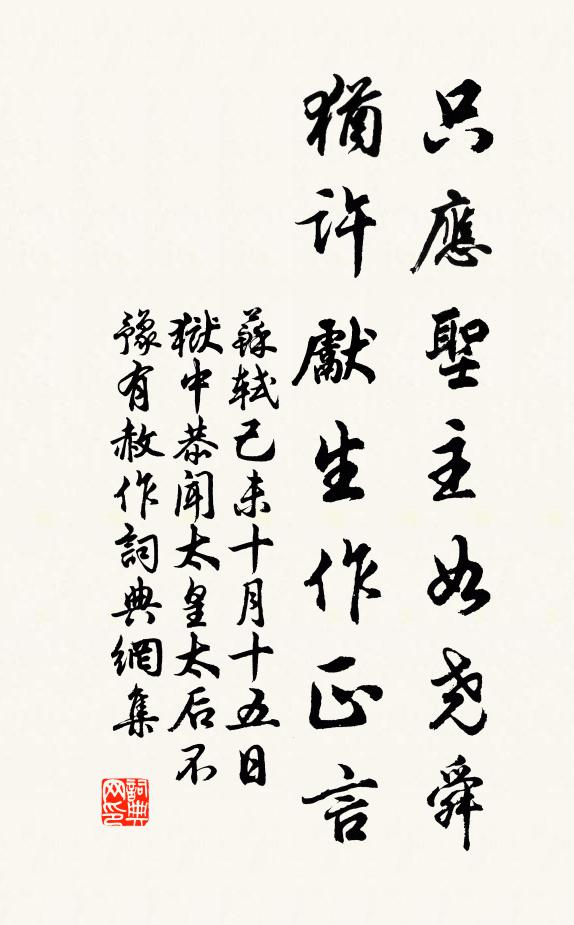 只應聖主如尧舜
猶許獻生作正言
蘇軾己未十月十五日
獄中恭聞太皇太后不
豫有赦作詞典網集
詞典
网印